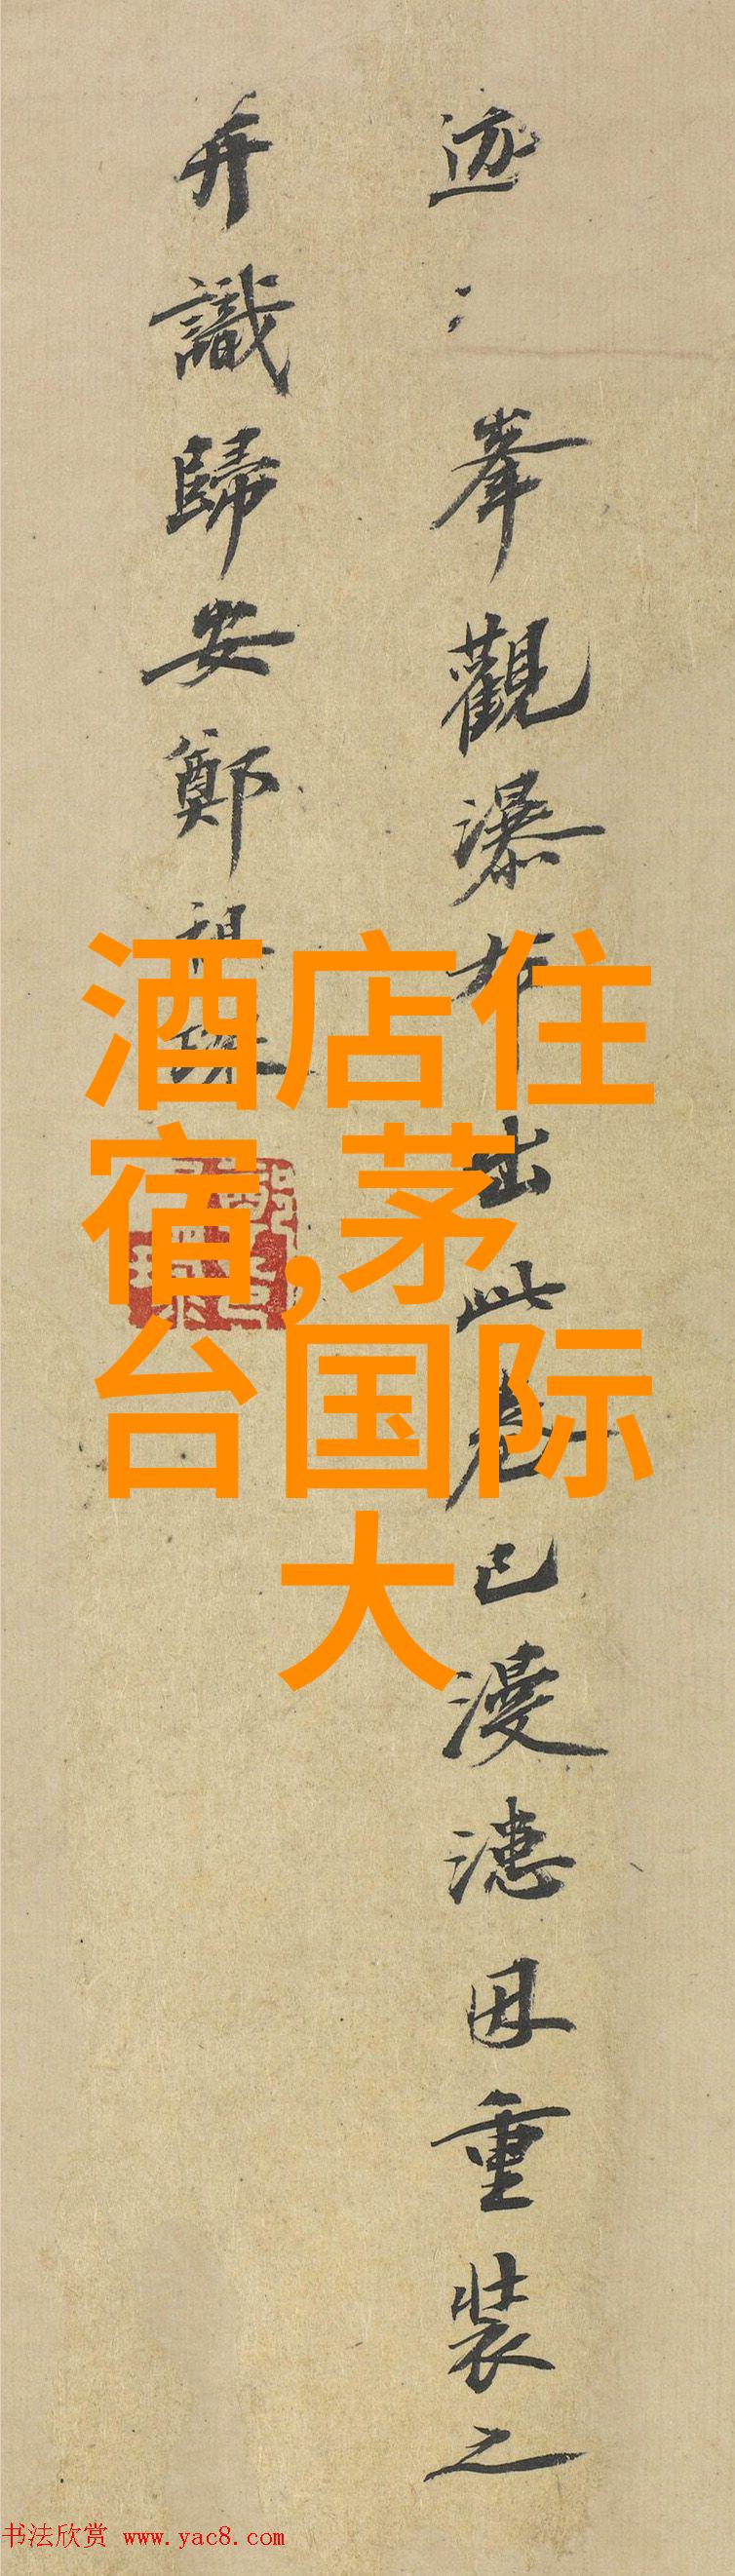 迹〻峯觀瀑布出此卷已漫漶因重装之
并識歸安鄭祖琛
酒店住
宿,茅
台国际
大
书法欣赏 www.yac8.com